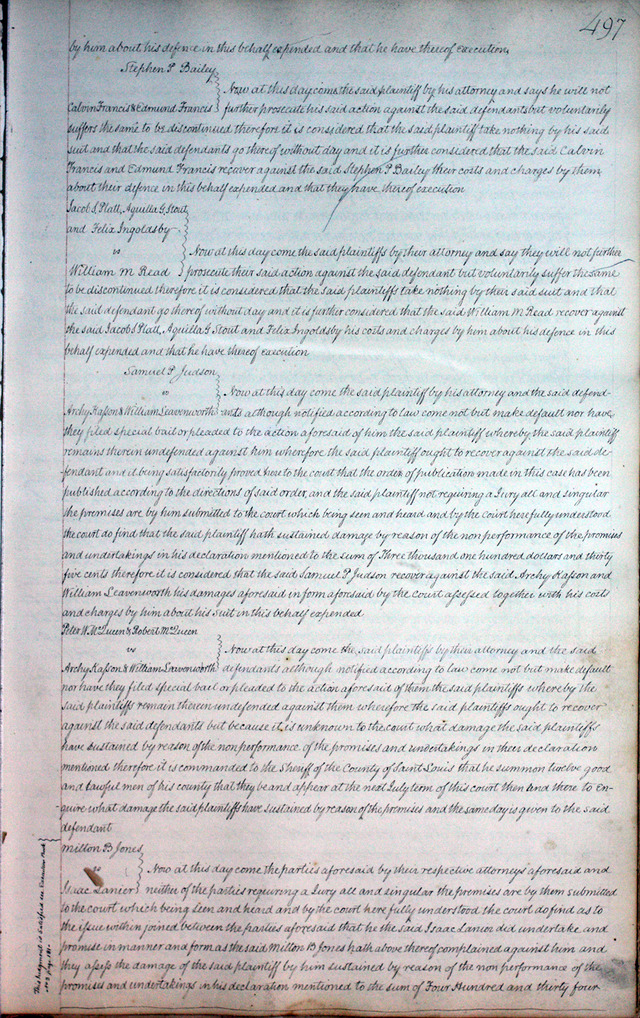 497
by him about his defence in this behalf expended and that he have thereof execution
Stephen P Bailey
Now at this day comes the said plaintiff by his attorney and says he will not
Calvin Francis & Edmund Francis further prosecute his said action against the said defendants but voluntarily
suffers the same to be discontinued therefore it is considered that the said plaintiff take nothing by his said
suit and that the said defendants go there of without day and it is further considered that the said Calvin
Francis and Edmund Francis recover against the said Stephen P Bailey their costs and charges by them
about their defence in this behalf expended and that they have thereof execution
Jacob S Platt, Aquilla G Stout
and Felix Ingoldsby
vs Now at this day come the said plaintiffs by their attorney and say they will not further
William M Read prosecute their said action against the said defendant but voluntarily suffer the same
to be discontinued therefore it is considered that the said plaintiffs take nothing by their said suit and that
the said defendant go there of without day and it is further considered that the said William M Read recover against
the said Jacob S Platt, Aquilla G Stout and Felix Ingoldsby his costs and charges by him about his defence in this
behalf expended and that he have thereof execution
Samuel P Judson
vs Now at this day come the said plaintiff by his attorney and the said defend-
Archy Kasson & William Leavenworth ants although notified according to law come not but make default nor have
they filed special bail or pleaded to the action aforesaid of him the said plaintiff whereby the said plaintiff
remains therein undefended against him wherefore the said plaintiff ought to recover against the said de-
fendant and it being satisfactorily proved here to the court that the order of publication made in this case has been
published according to the directions of said order, and the said plaintiff not requiring a Jury all and singular
the premises are by him submitted to the court which being seen and heard and by the court here fully understood
the court do find that the said plaintiff hath sustained damage by reason of the non performance of the promises
and undertakings in his declaration mentioned to the sum of Three thousand one hundred dollars and thirty
five cents therefore it is considered that the said Samuel P Judson recover against the said Archy Kasson and
William Leavenworth his damages aforesaid in form aforesaid by the court assessed together with his costs
and charges by him about his suit in this behalf expended
Peter W McQueen & Robert McQueen
vs Now at this day come the said plaintiffs by their attorney and the said
Archy Kasson & William Leavenworth defendants although notified according to law come not but make default
nor have they filed special bail or pleaded to the action aforesaid of them the said plaintiffs where by the
said plaintiffs remain therein undefended against them wherefore the said plaintiffs ought to recover
against the said defendants but because it is unknown to the court what damage the said plaintiffs
have sustained by reason of the non performance of the promises and undertakings in their declaration
mentioned therefore it is commanded to the Sheriff of the County of Saint Louis that he summon twelve good
and lawful men of his county that they be and appear at the next July term of this court then and there to en-
quire what damage the said plaintiffs have sustained by reason of the premises and the same day is given to the said
defendant
Milton B Jones
vs Now at this day come the parties aforesaid by their respective attorneys aforesaid and
Isaac Lanier neither of the parties requiring a Jury all and singular the premises are by them submitted
to the court which being seen and heard and by the court here fully understood the court do find as to
the issue within joined between the parties aforesaid that he the said Isaac Lanier did undertake and
promise in manner and form as the said Milton B Jones hath above thereof complained against him and
they assess the damage of the said plaintiff by him sustained by reason of the non performance of the
promises and undertakings in his declaration mentioned to the sum of Four Hundred and thirty four
This Judgment is satisfied see Execution Book
No 2 page